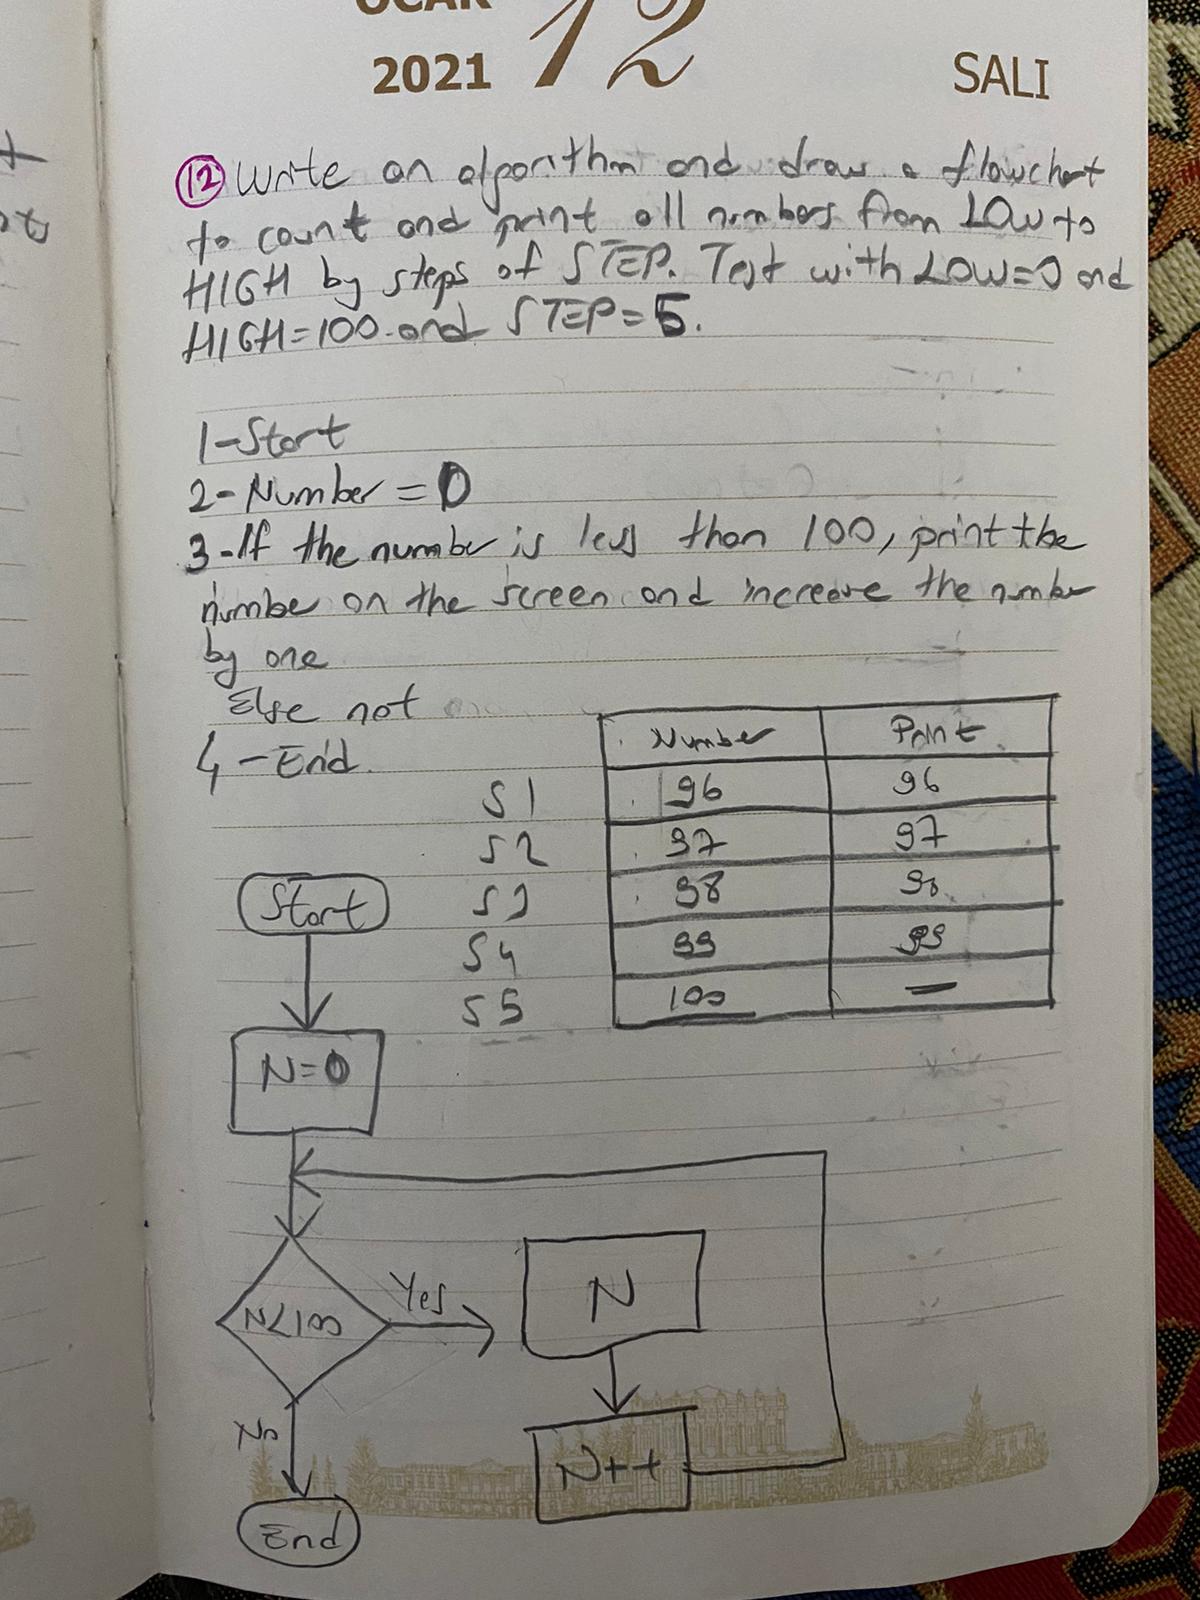 OCAK
2021 12 SALI
12 Write an algorithm and draw a flowchart
to count and print all numbers from LOW to
HIGH by steps of STEP. Test with LOW=0 and
HIGH=100 and STEP=5.
1-Start
2- Number = 0
3-If the number is less than 100, print the
number on the screen and increase the number
by one
Else not
4-End
Number Print
S1 96 96
S2 97 97
S3 98 98
S4 99 99
S5 100 —
Start
N=0
N<100
Yes
N
No
N++
End